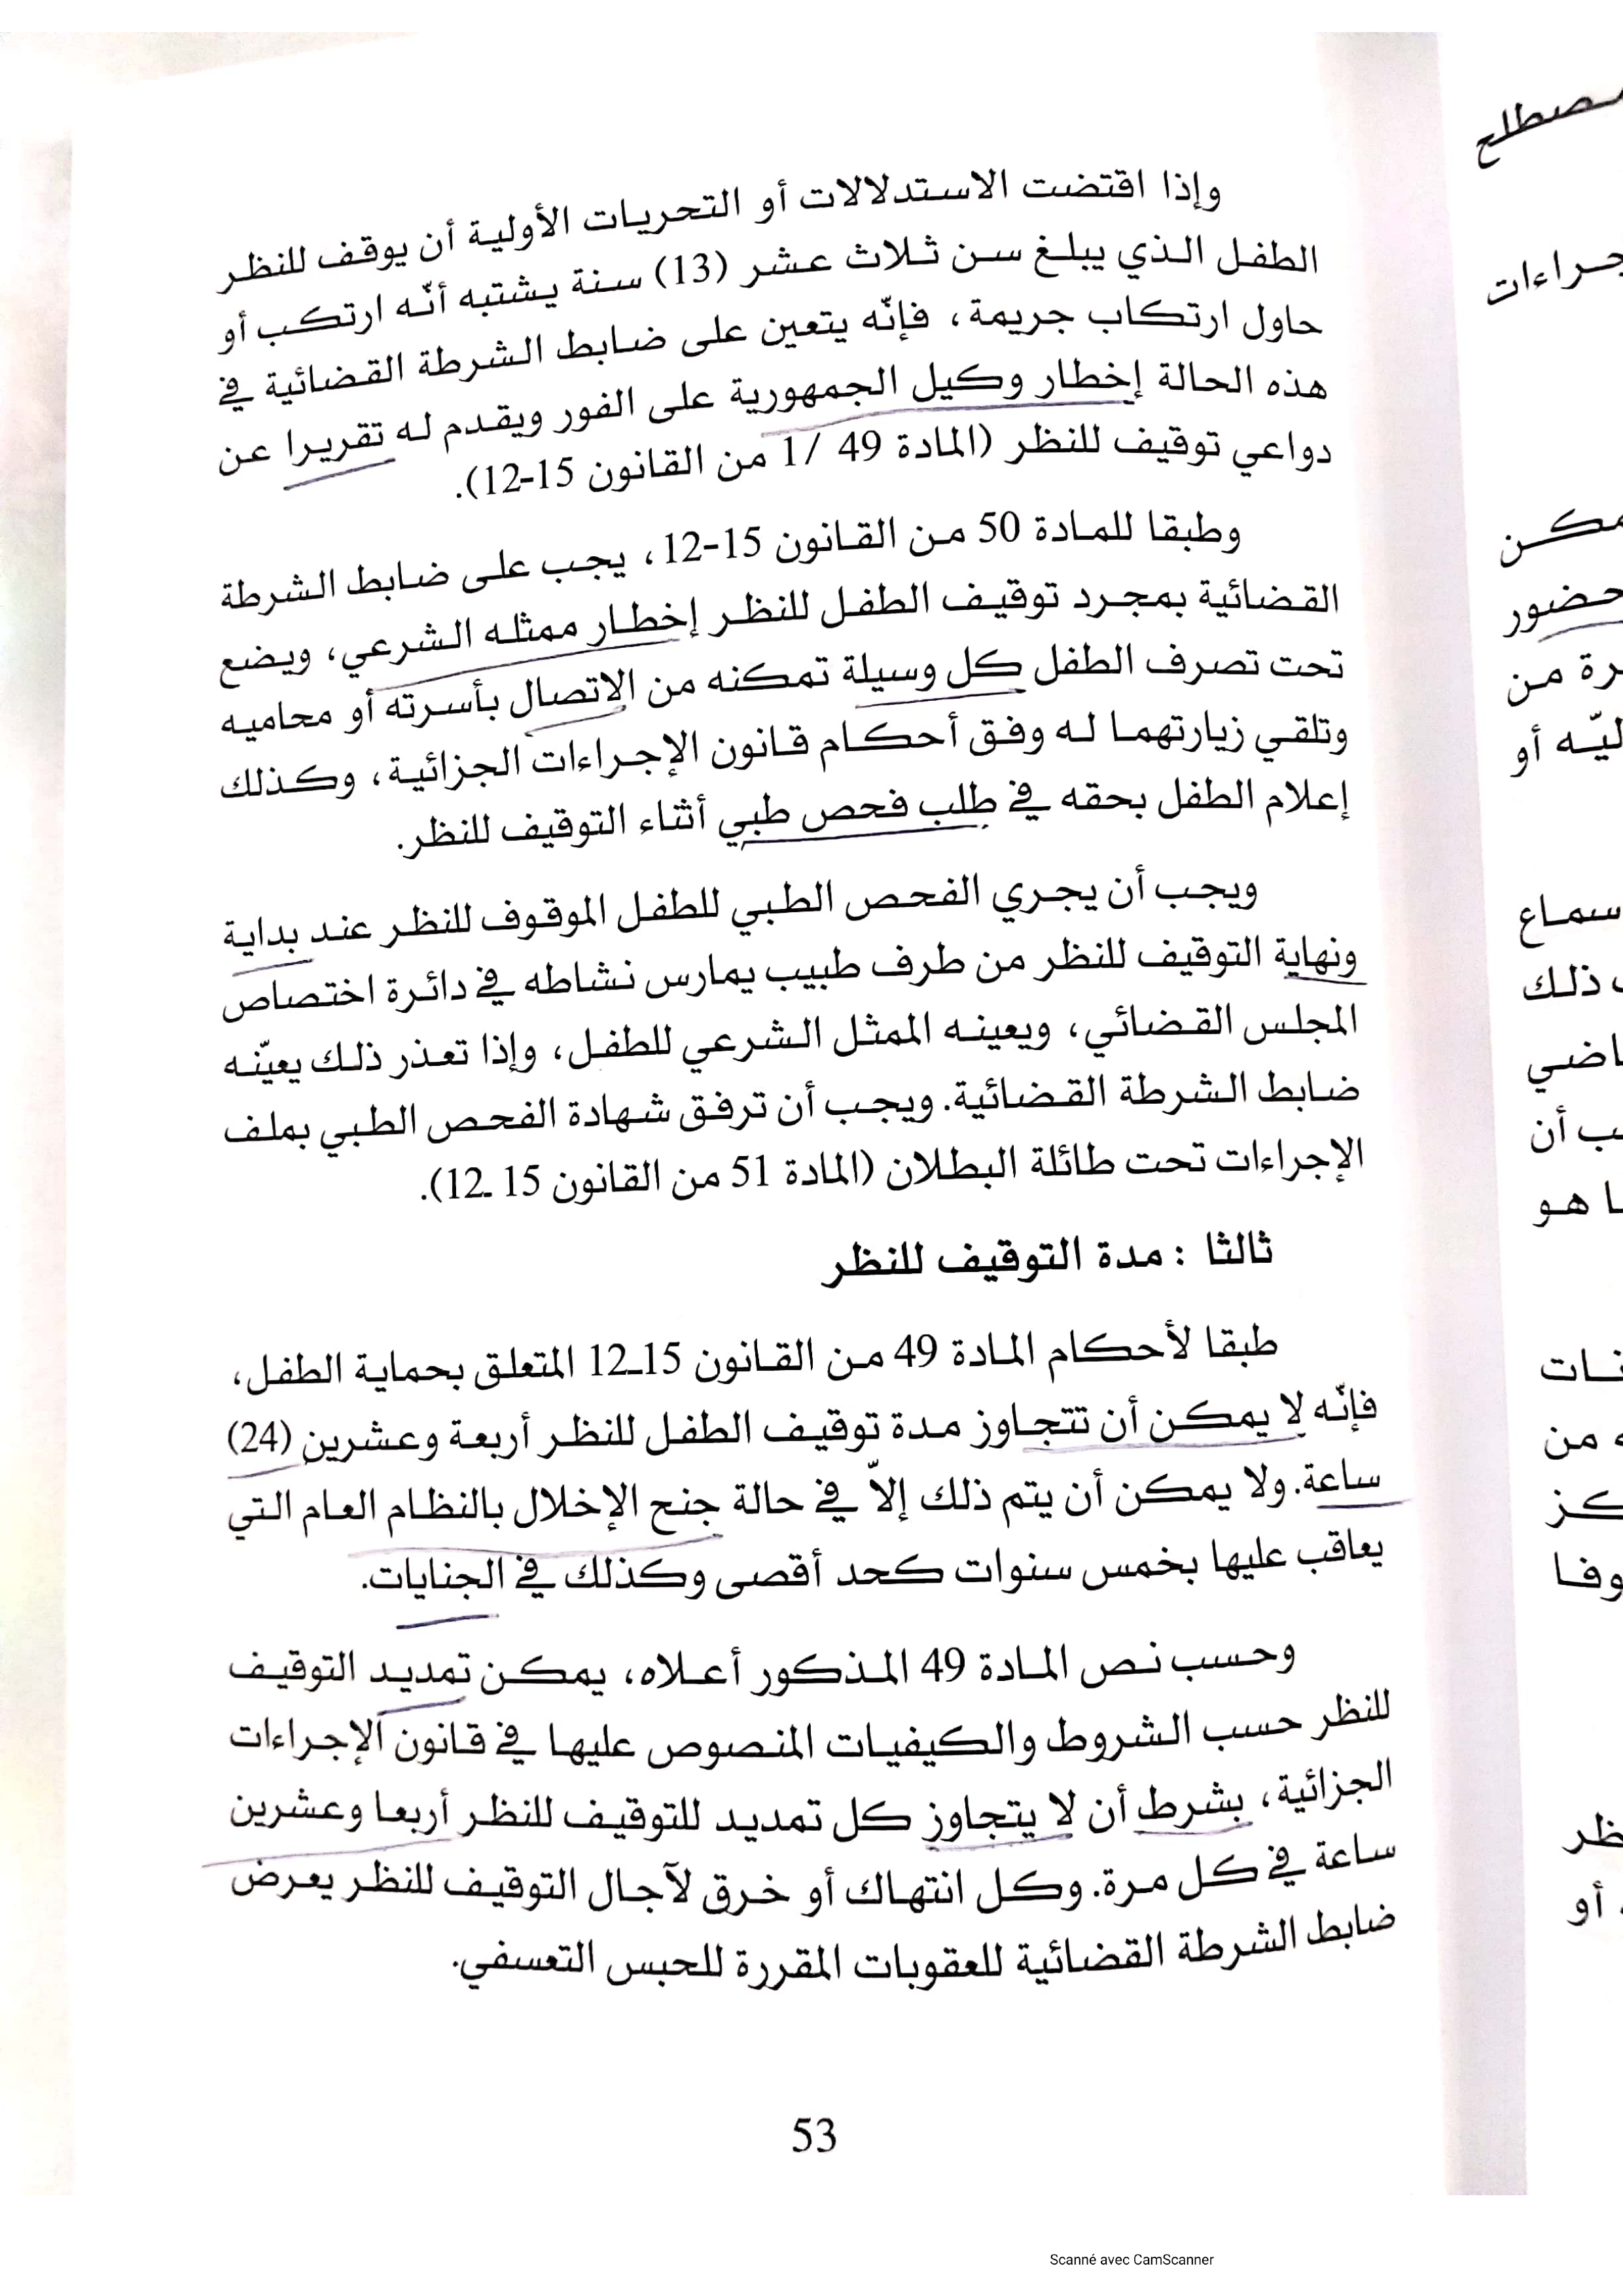 وإذا اقتضت الاستدلالات أو التحريات الأولية أن يوقف للنظر
الطفل الذي يبلغ سن ثلاث عشر (13) سنة يشتبه أنّه ارتكب أو
حاول ارتكاب جريمة، فإنّه يتعين على ضابط الشرطة القضائية في
هذه الحالة إخطار وكيل الجمهورية على الفور ويقدم له تقريرا عن
دواعي توقيف للنظر (المادة 49 /1 من القانون 15-12).
وطبقا للمادة 50 من القانون 15-12، يجب على ضابط الشرطة
القضائية بمجرد توقيف الطفل للنظر إخطار ممثله الشرعي، ويضع
تحت تصرف الطفل كل وسيلة تمكنه من الاتصال بأسرته أو محاميه
وتلقي زيارتهما له وفق أحكام قانون الإجراءات الجزائية، وكذلك
إعلام الطفل بحقه في طلب فحص طبي أثناء التوقيف للنظر.
ويجب أن يجري الفحص الطبي للطفل الموقوف للنظر عند بداية
ونهاية التوقيف للنظر من طرف طبيب يمارس نشاطه في دائرة اختصاص
المجلس القضائي، ويعينه الممثل الشرعي للطفل، وإذا تعذر ذلك يعيّنه
ضابط الشرطة القضائية. ويجب أن ترفق شهادة الفحص الطبي بملف
الإجراءات تحت طائلة البطلان (المادة 51 من القانون 15 ـ12).
ثالثا : مدة التوقيف للنظر
طبقا لأحكام المادة 49 من القانون 15ـ12 المتعلق بحماية الطفل،
فإنّه لا يمكن أن تتجاوز مدة توقيف الطفل للنظر أربعة وعشرين (24)
ساعة. ولا يمكن أن يتم ذلك إلاّ في حالة جنح الإخلال بالنظام العام التي
يعاقب عليها بخمس سنوات كحد أقصى وكذلك في الجنايات.
وحسب نص المادة 49 المذكور أعلاه، يمكن تمديد التوقيف
للنظر حسب الشروط والكيفيات المنصوص عليها في قانون الإجراءات
الجزائية، بشرط أن لا يتجاوز كل تمديد للتوقيف للنظر أربعا وعشرين
ساعة في كل مرة. وكل انتهاك أو خرق لآجال التوقيف للنظر يعرض
ضابط الشرطة القضائية للعقوبات المقررة للحبس التعسفي.
53
حضور
من
أو
سماع
ذلك
أن
هو
من
أو
Scanné avec CamScanner